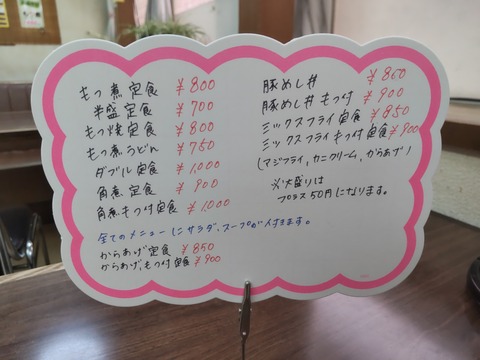 もつ煮定食 ¥800
半盛定食 ¥700
もつ焼定食 ¥800
もつ煮うどん ¥750
ダブル定食 ¥1,000
角煮定食 ¥900
角煮もつ付定食 ¥1,000
全てのメニューにサラダ、スープが付きます。
からあげ定食 ¥850
からあげもつ付定食 ¥900
豚めし丼 ¥800
豚めし丼もつ付 ¥900
ミックスフライ定食 ¥850
ミックスフライもつ付定食 ¥900
(アジフライ、カニクリーム、からあげ)
※大盛りは
プラス50円になります。